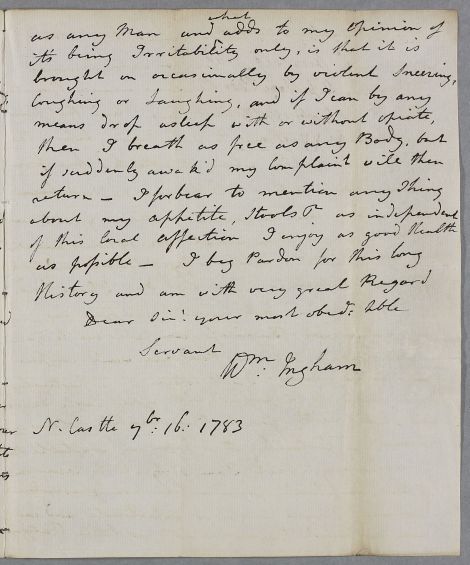 what
as any Man and adds to my Opinion of
it's being Irritability only, is that it is
brought on occasionally by violent Sneezing,
Coughing or Laughing, and if I can by any
means drop asleep with or without opiate,
then I breath as free as any Body, but
if suddenly awak'd my Complaint will then
return — I forbear to mention any Thing
about my appetite, Stools &c as independent
of this local affection I enjoy as good Health
as possible — I beg Pardon for this long
History and am with very great Regard
Dear Sir: your most obedt: Hble
Servant
Wm: Ingham
N. Castle 7br: 16: 1783